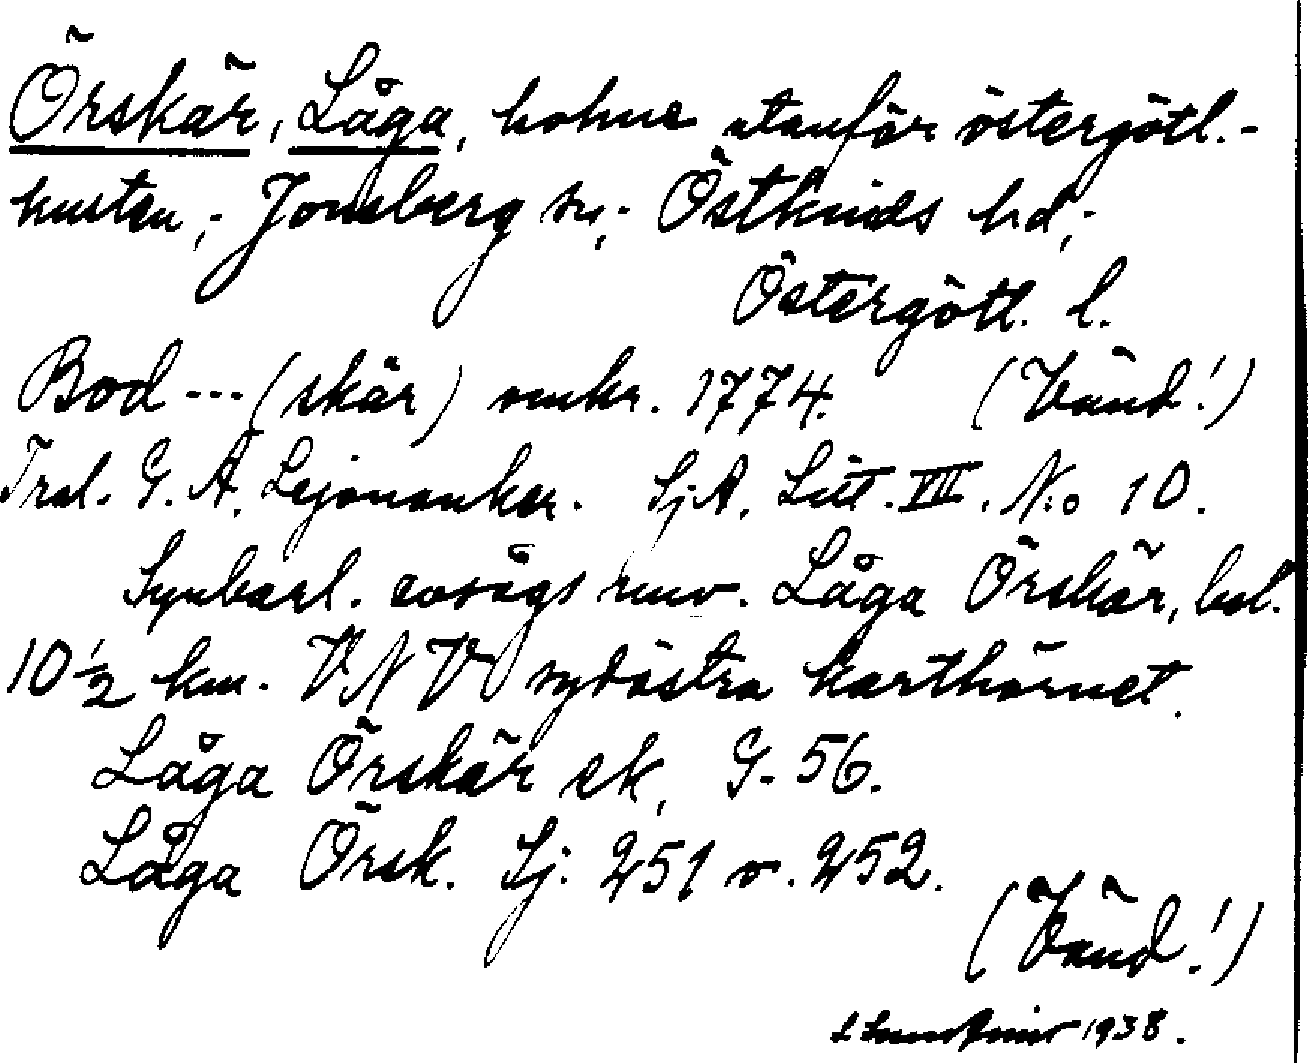 Örskär, Låga, holme utanför östergötl.-
kusten,- Jonsberg sn,- Östkinds hd,-
Östergötl. l.
Bod --- (skär) omkr. 1774. (Vänd!)
Tral. G. A. Lejonanker. SjA. Litt. VII. No 10.
Synbarl. avsågs nuv. Låga Örskär, bel.
10 1/2 km. VNV sydöstra karthörnet.
Låga Örskär ek, G. 56.
Låga Örsk. Sj. 251 o. 252.
(Vänd!)
1938.